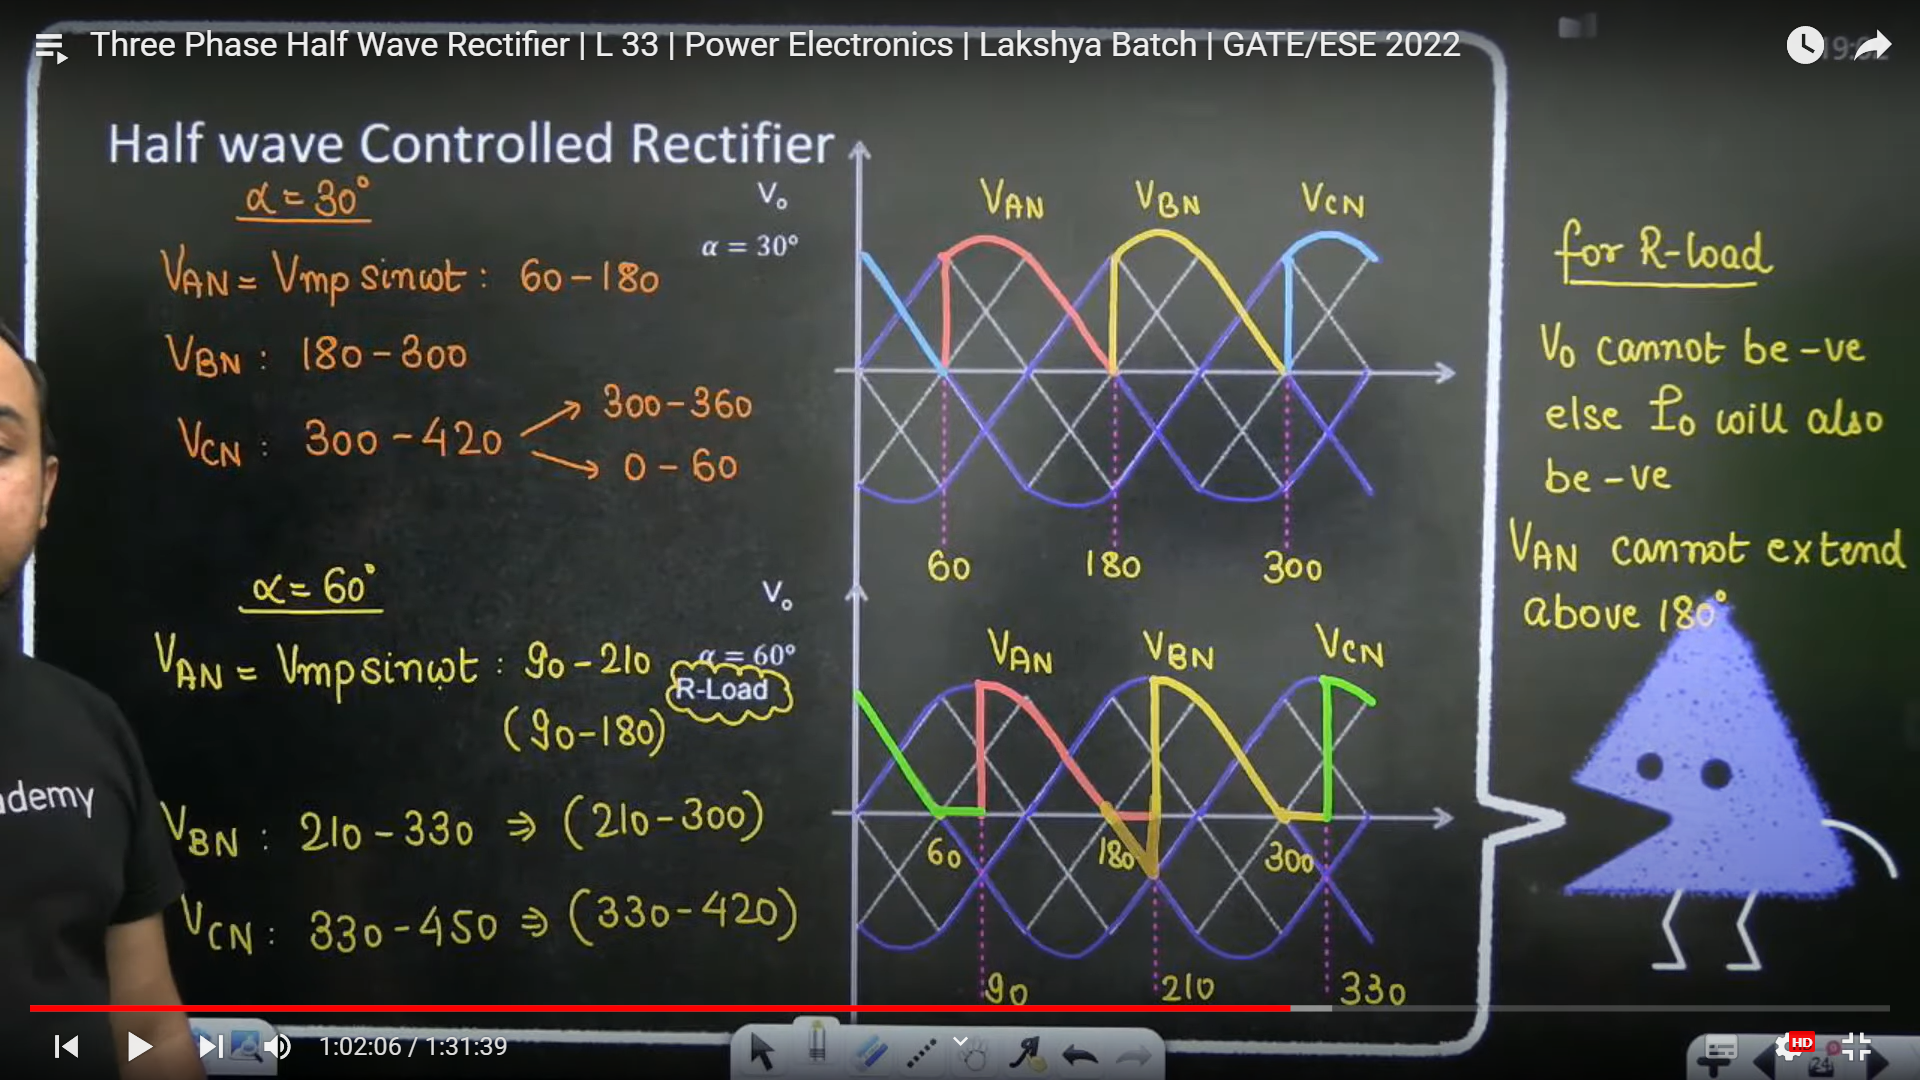 Three Phase Half Wave Rectifier | L 33 | Power Electronics | Lakshya Batch | GATE/ESE 2022
Half wave Controlled Rectifier
α = 30°
VAN = Vmp sinωt : 60 - 180
VBN : 180 - 300
VCN : 300 - 420
300 - 360
0 - 60
α = 60°
VAN = Vmp sinωt : 90 - 210
(90 - 180)
VBN : 210 - 330 ⇒ (210 - 300)
VCN : 330 - 450 ⇒ (330 - 420)
Vo
α = 30°
VAN VBN VCN
60 180 300
Vo
α = 60°
R-Load
VAN VBN VCN
60 180 300
90 210 330
for R-load
Vo cannot be -ve
else Io will also
be -ve
VAN cannot extend
above 180°
1:02:06 / 1:31:39
HD
24